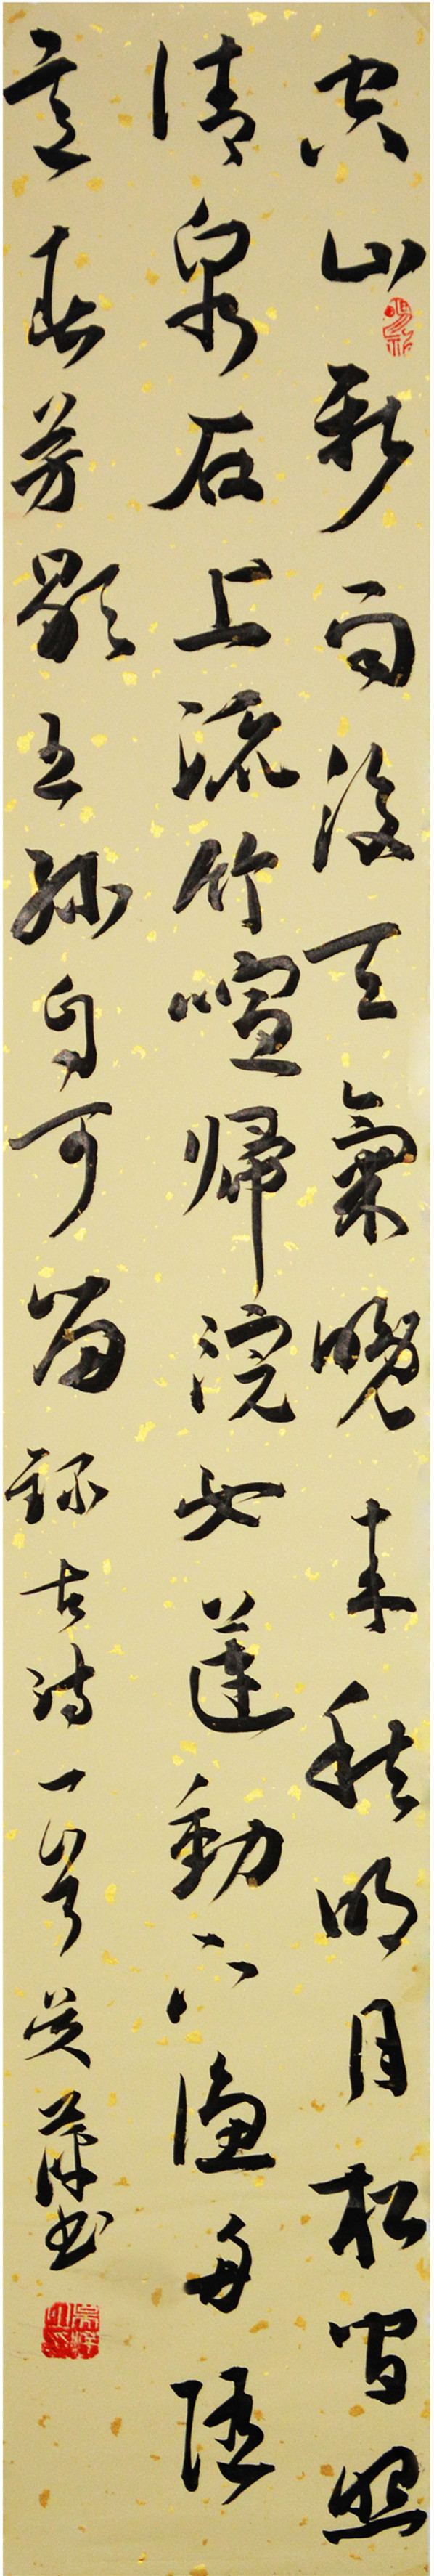 空山新雨後天氣晚來秋明月松間照
清泉石上流竹喧歸浣女蓮動下漁舟隨
意春芳歇王孫自可留錄古詩一首吳萍書